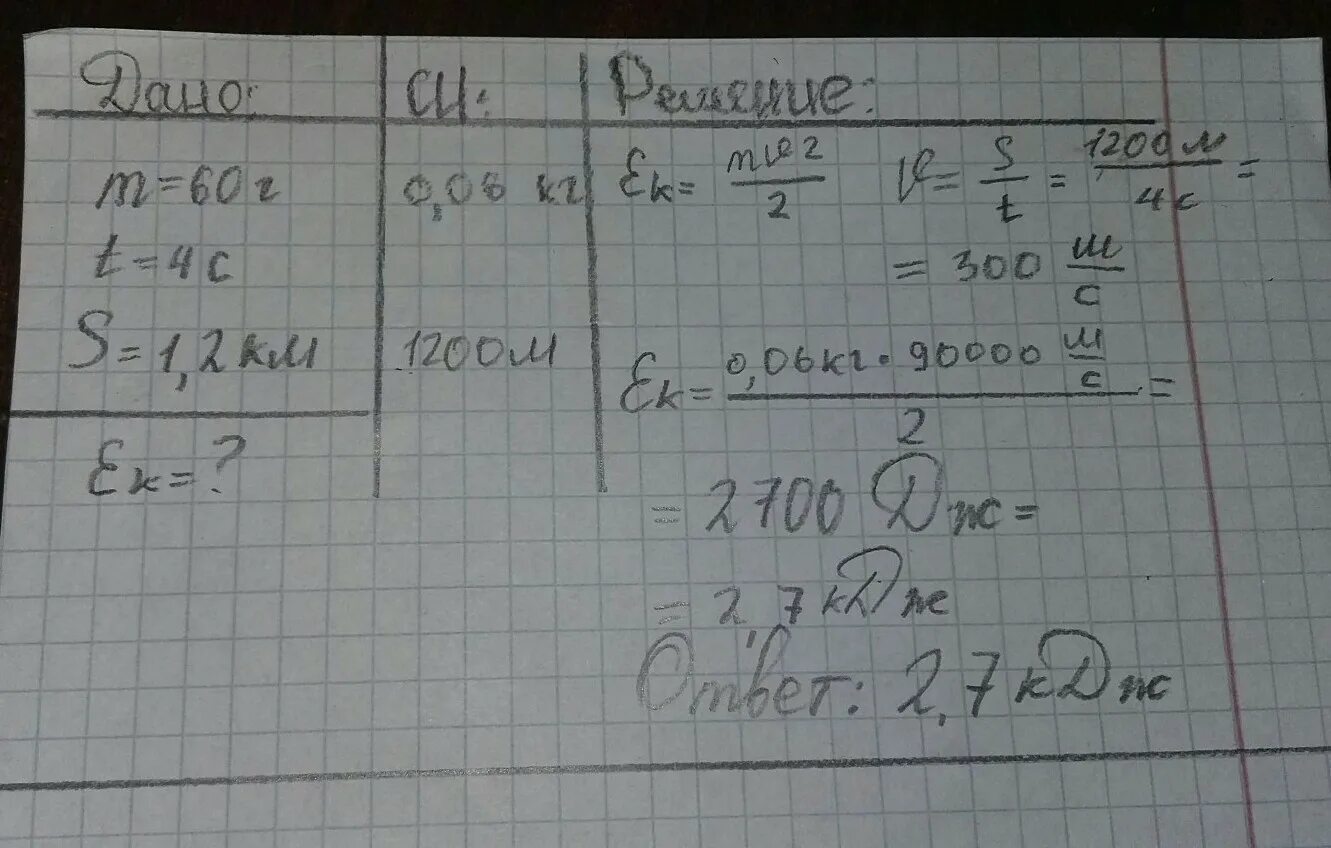 Дано: СИ: Решение:
m = 60 г 0,06 кг Eк = mv²/2 v = S/t = 1200 м/4 с =
t = 4 с = 300 м/с
S = 1,2 км 1200 м Eк = 0,06 кг · 90000 м/с / 2 =
Eк = ? = 2700 Дж =
= 2,7 кДж
Ответ: 2,7 кДж